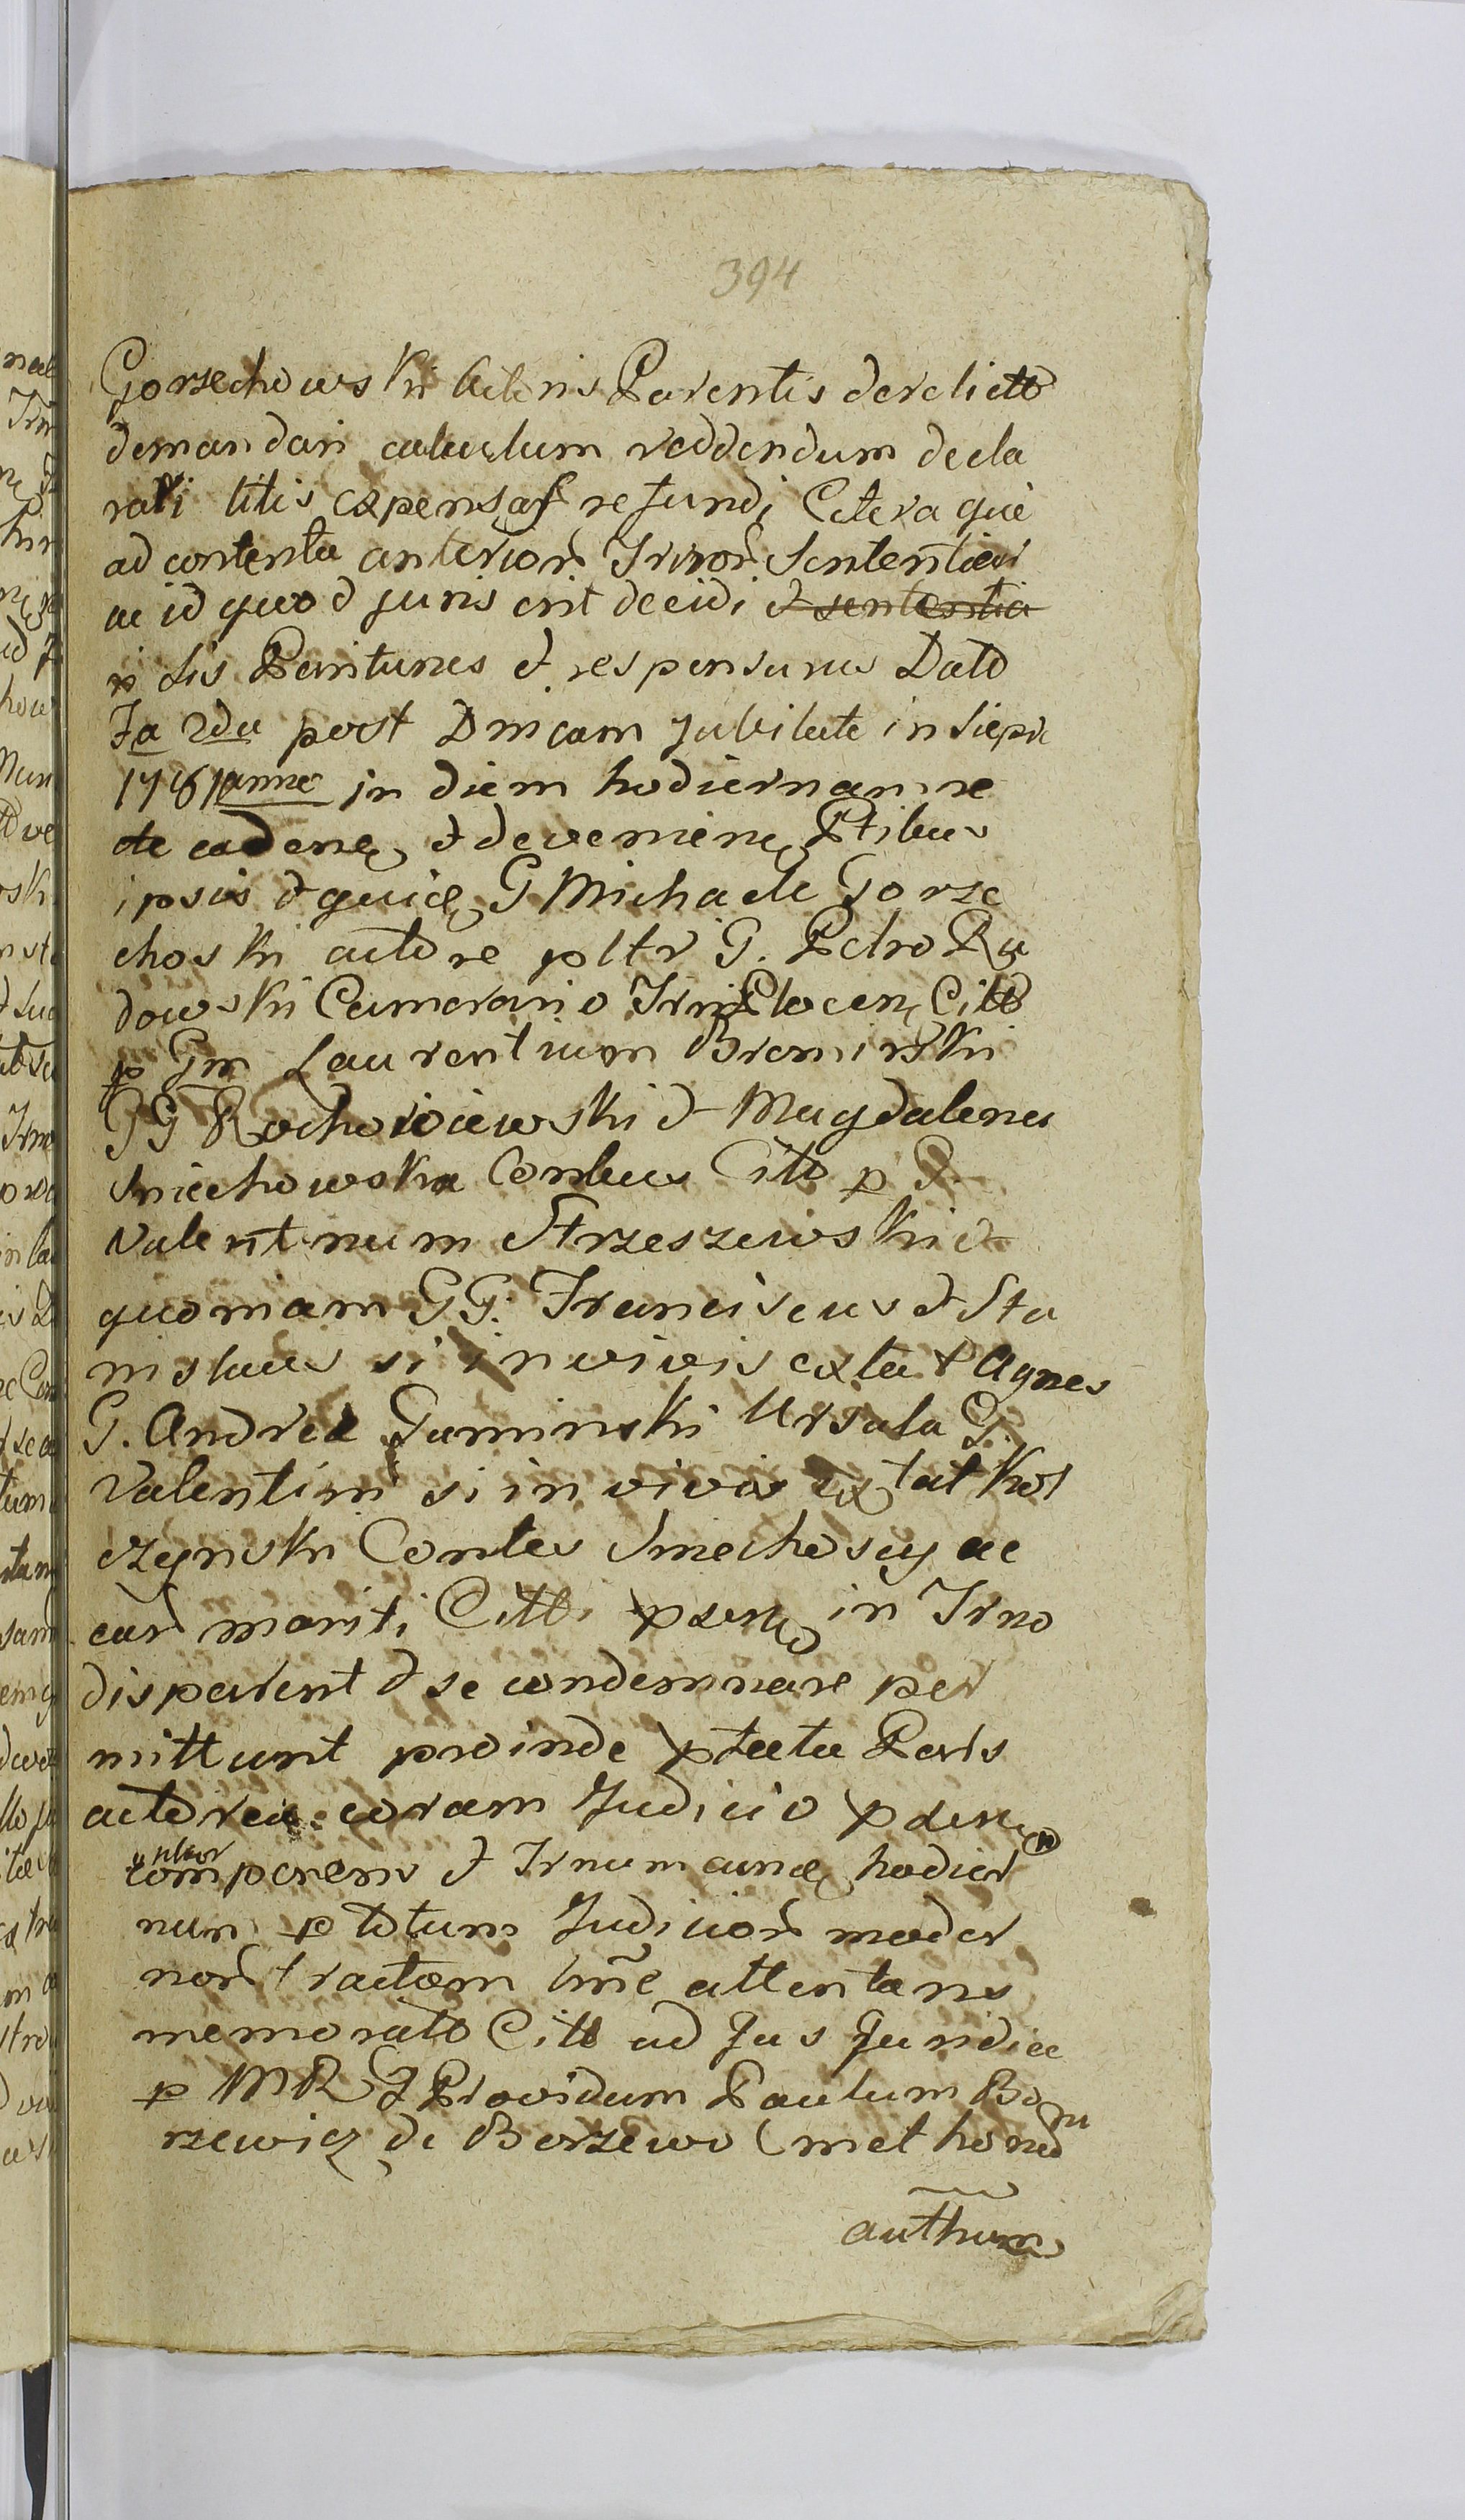 394
Gorzechowski Actoris Parentis derelicto
demandari calculum reddendum decla
rari litis expensas refundi Cetera que
ad contenta anterior Trnor Sententiari
ac id quod juris erit decidi et sententia
n dis Pariturus et responsurus Dato
Fa 2da post Dnicam Jubilate in Siepr
1761 anno in diem hodiernam re
cte cadene et devenien Ptibus
ipsis et quidē G Michaele Gorze
choski actore pltr G. Petro Ra
dowski Camerario Trni Plocen Citto
p Gm Laurentium Bromirski
GG Rochowiewski et Magdalena
Sniechowska Conbus Citto p G.
Valentinum Strzeszewski et
quoniam GG. Franciscus et Sta
nislaus si in vivis extat Agnes
G. Andreæ Guminski Ursula G.
Valentini si in vivis extat Kol
czynski Contes Sniechoscy ac
ear mariti Citti pden in Trno
disparent et se condemnare per
mittunt proinde pfata Pars
actorea coram Judicio pden
comparens et Trnum cunc hodier
num p totum Judicior moder
nor tractum lime attentans
memorato Citto ad Jus Juridice
p MR et Providum Paulum Bo
rzewicz de Borzewo Omethonem
authum